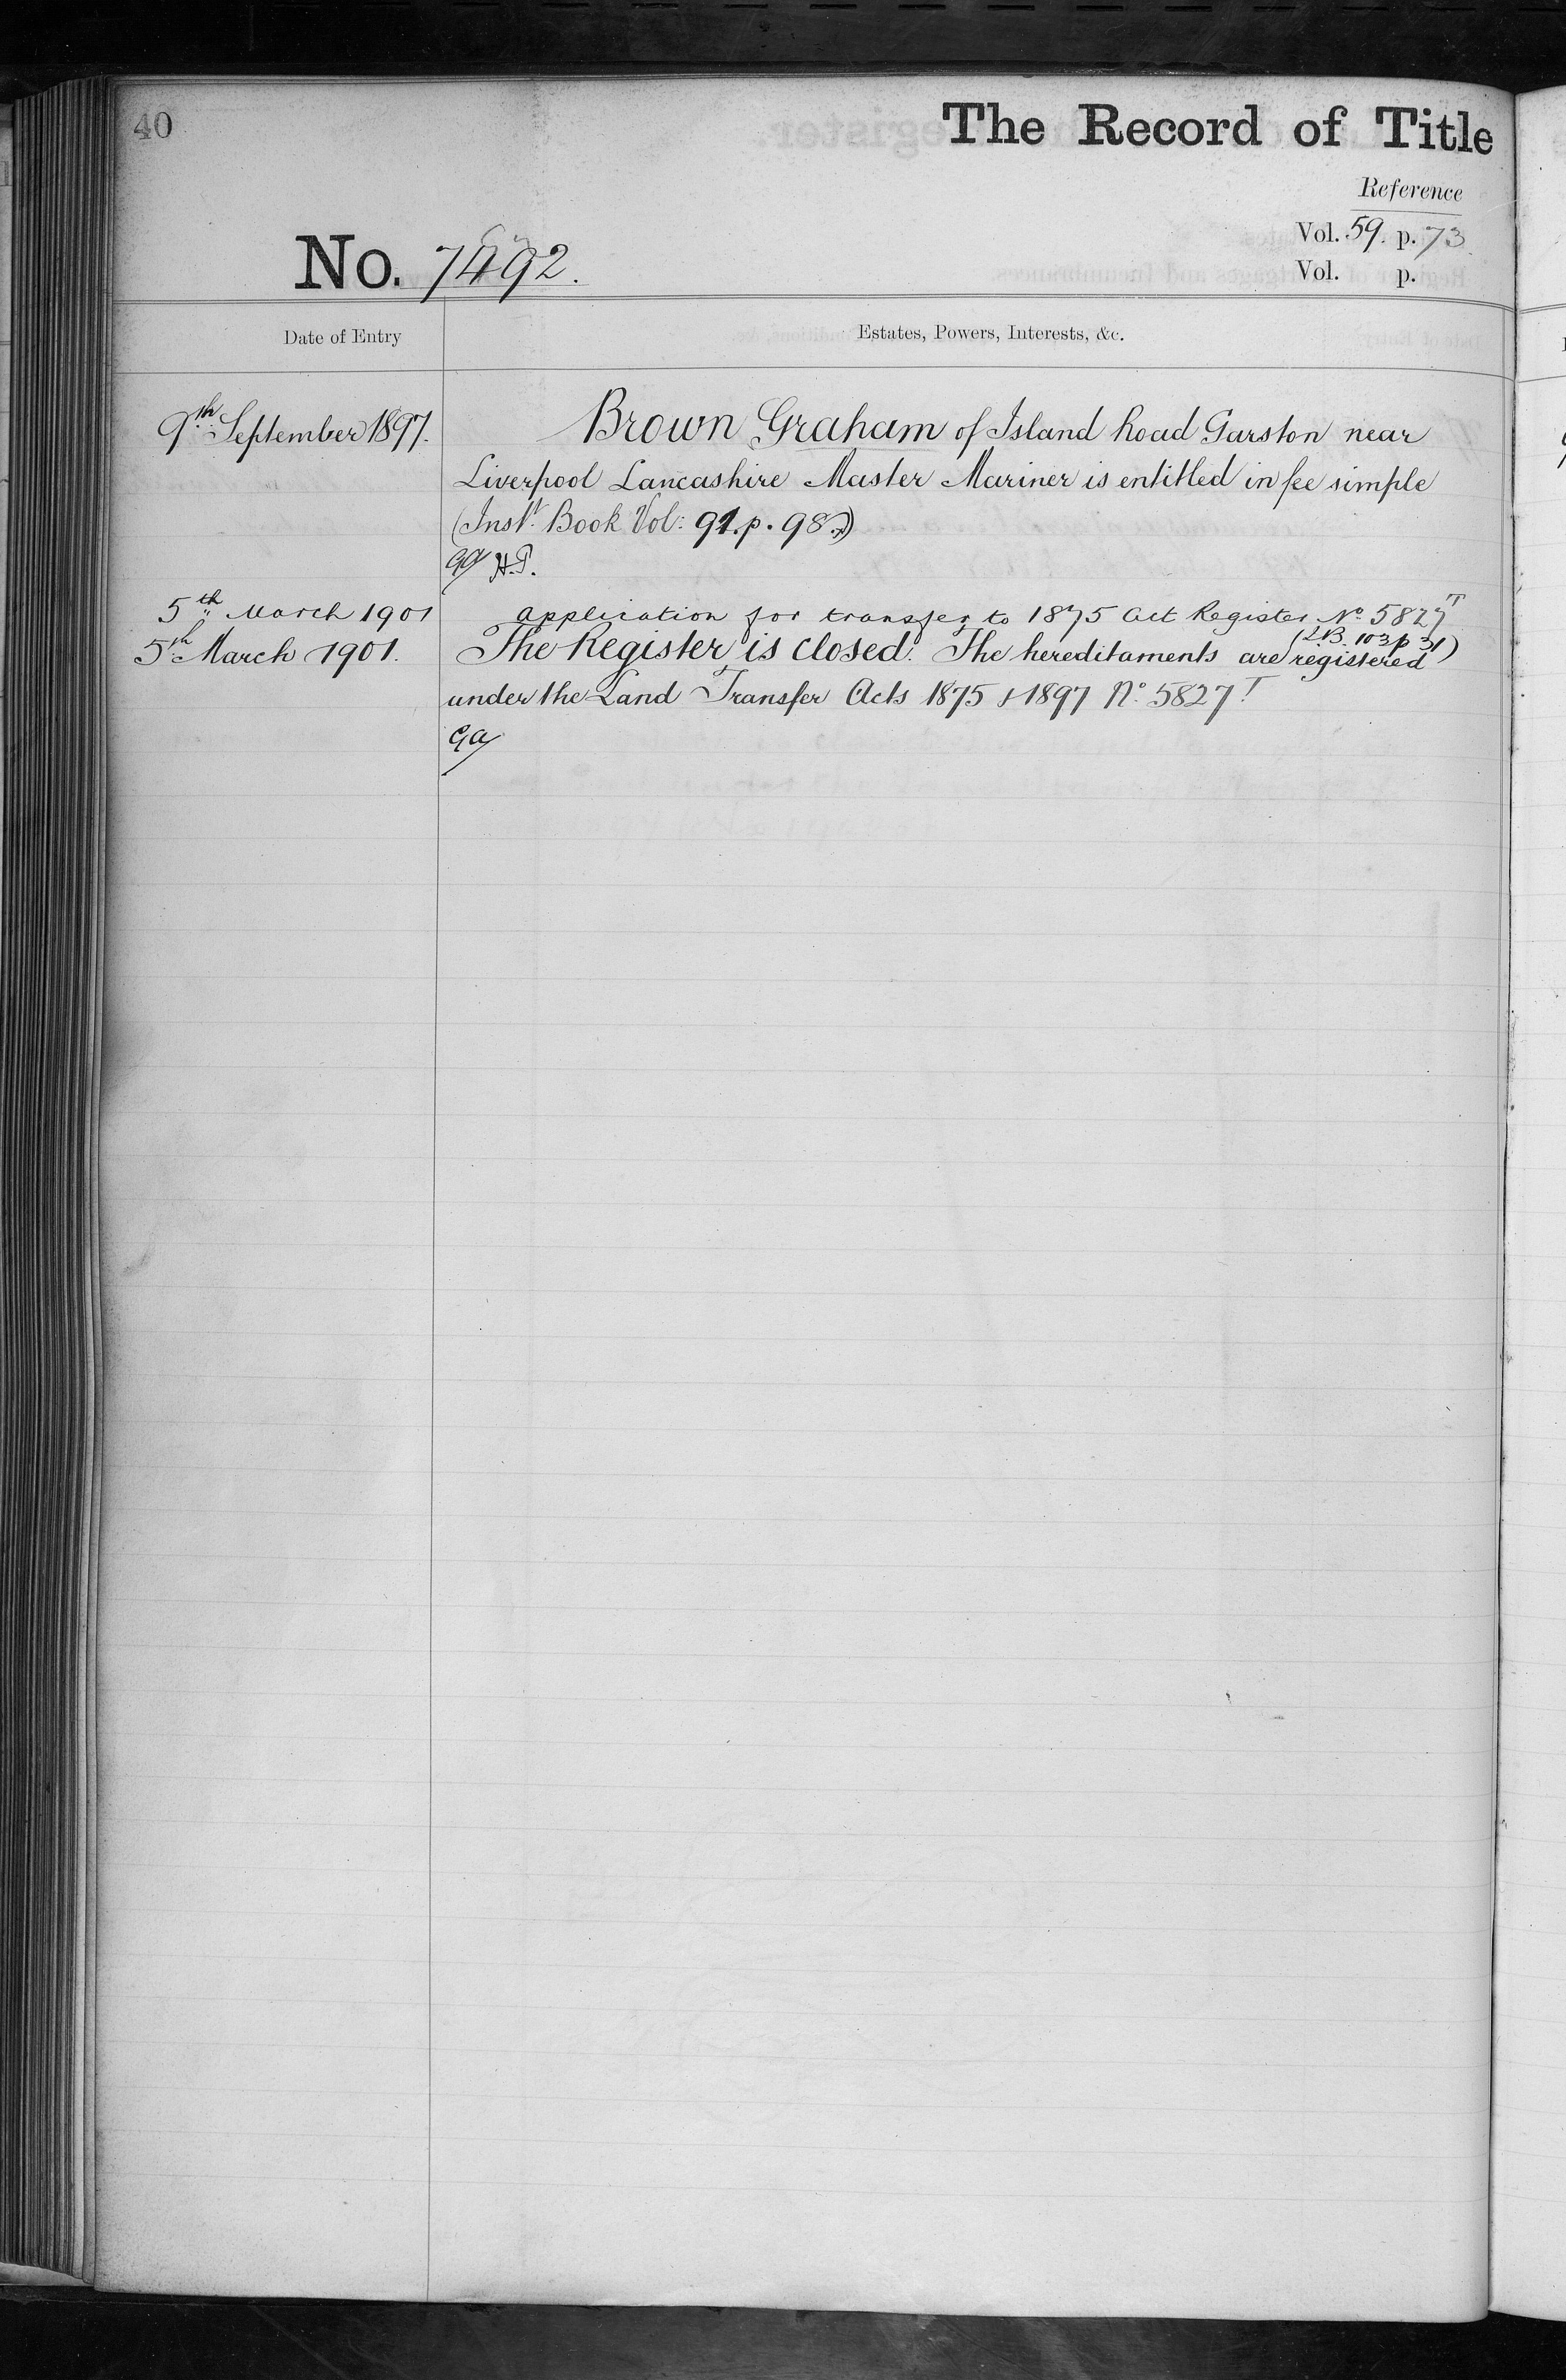 40
The Record of Title
Reference
Vol. 59. p. 73.
No. 7492.
Vol. p.
Date of Entry
Estates, Powers, Interests, &c.
9th September 1897.
Brown Graham of Island Road Garston near
Liverpool Lancashire Master Mariner is entitled in fee simple
(Inst. Book Vol: 91. p. 98.)
H.P.
5th March 1901
Application for transfer to 1875 Act Register No 5827T
(IB. 103 p 31)
5th March 1901.
The Register is closed. The hereditaments are registered
under the Land Transfer Acts 1875 & 1897 No. 5827T